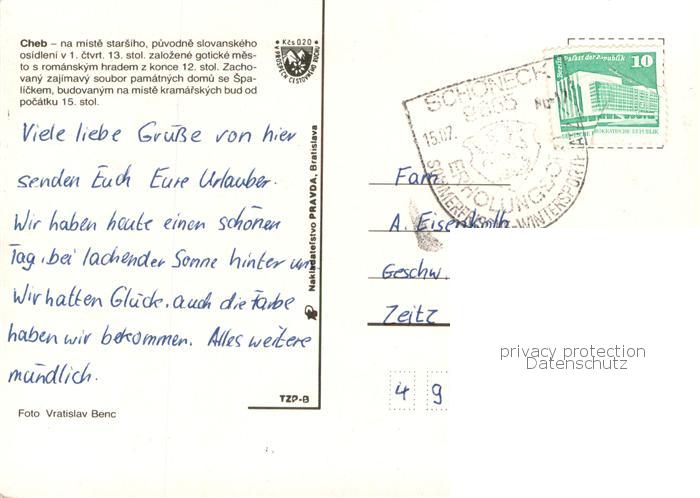 Cheb – na místě staršího, původně slovanského
osídlení v 1. čtvrt. 13. stol. založené gotické měs-
to s románským hradem z konce 12. stol. Zacho-
vaný zajímavý soubor památných domů se Špa-
líčkem, budovaným na místě kramářských bud od
počátku 15. stol.
Kčs 0,20
Viele liebe Grüße von hier
senden Euch Eure Urlauber.
Wir haben heute einen schönen
Tag, bei lachender Sonne hinter uns
Wir hatten Glück, auch die Farbe
haben wir bekommen. Alles weitere
mündlich.
Foto Vratislav Benc
Nakladateľstvo PRAVDA, Bratislava
TZP-B
SCHÖNECK
15.07.
ERHOLUNGSORT
Palast der Republik
Berlin
10
DEMOKRATISCHE REPUBLIK
Fam
A. Eisenkolb
Geschw.
Zeitz
4 9
privacy protection
Datenschutz